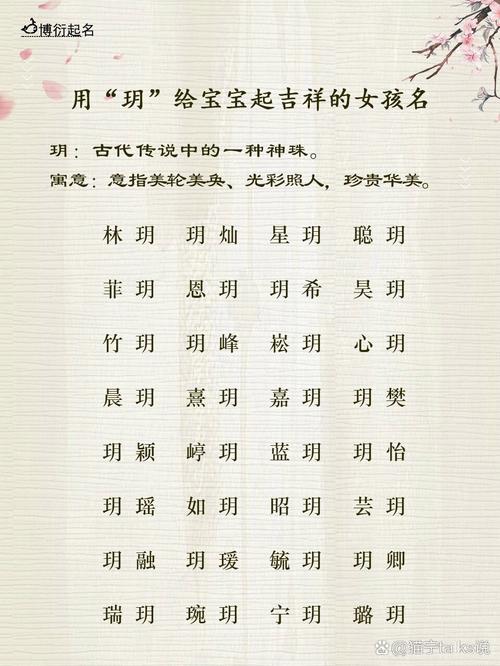 博衍起名
用“玥”给宝宝起吉祥的女孩名
玥：古代传说中的一种神珠。
寓意：意指美轮美奂、光彩照人，珍贵华美。
林玥 玥灿 星玥 聪玥
菲玥 恩玥 玥希 昊玥
竹玥 玥峰 崧玥 心玥
晨玥 熹玥 嘉玥 玥樊
玥颖 崞玥 蓝玥 玥怡
玥瑶 如玥 昭玥 芸玥
玥融 玥瑗 毓玥 玥卿
瑞玥 琬玥 宁玥 璐玥
猫宇talks说